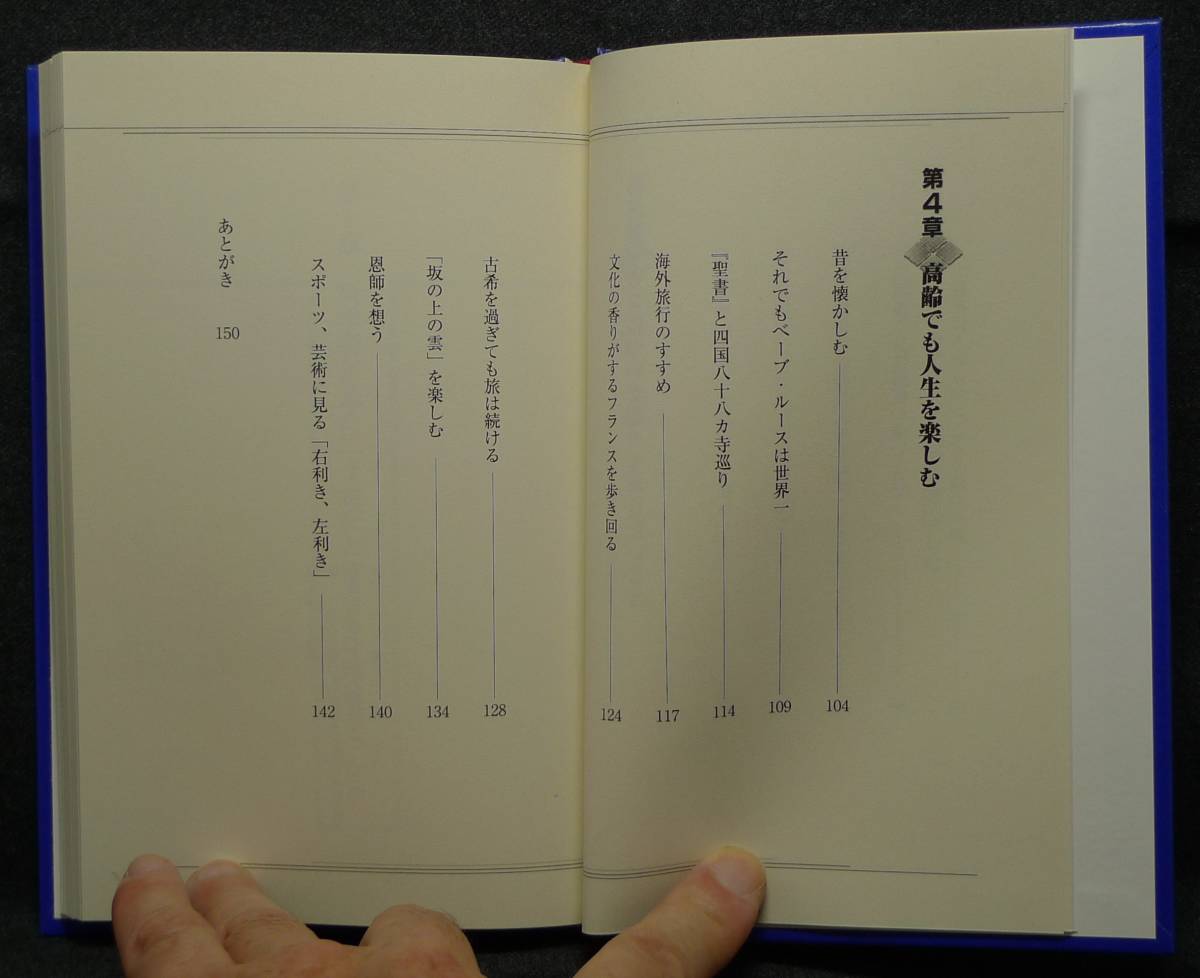 第4章 高齢でも人生を楽しむ
昔を懐かしむ 104
それでもベーブ・ルースは世界一 109
『聖書』と四国八十八カ寺巡り 114
海外旅行のすすめ 117
文化の香りがするフランスを歩き回る 124
古希を過ぎても旅は続ける 128
「坂の上の雲」を楽しむ 134
恩師を想う 140
スポーツ、芸術に見る「右利き、左利き」 142
あとがき 150